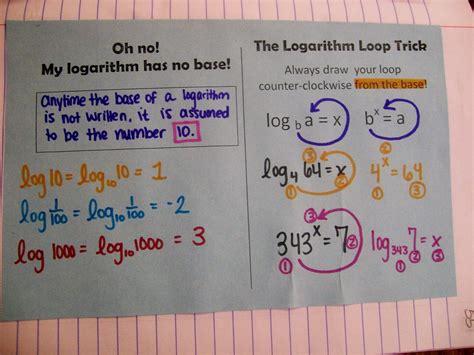 Oh no!
My logarithm has no base!
Anytime the base of a logarithm
is not written, it is assumed
to be the number 10.
log 10 = log₁₀ 10 = 1
log 1/100 = log₁₀ 1/100 = -2
log 1000 = log₁₀ 1000 = 3
The Logarithm Loop Trick
Always draw your loop
counter-clockwise from the base!
log b a = x bˣ = a
③ ②
log₄ 64 = x 4ˣ = 64
① ② ① ③
③
343ˣ = 7 ② log₃₄₃ 7 = x
① ① ② ③